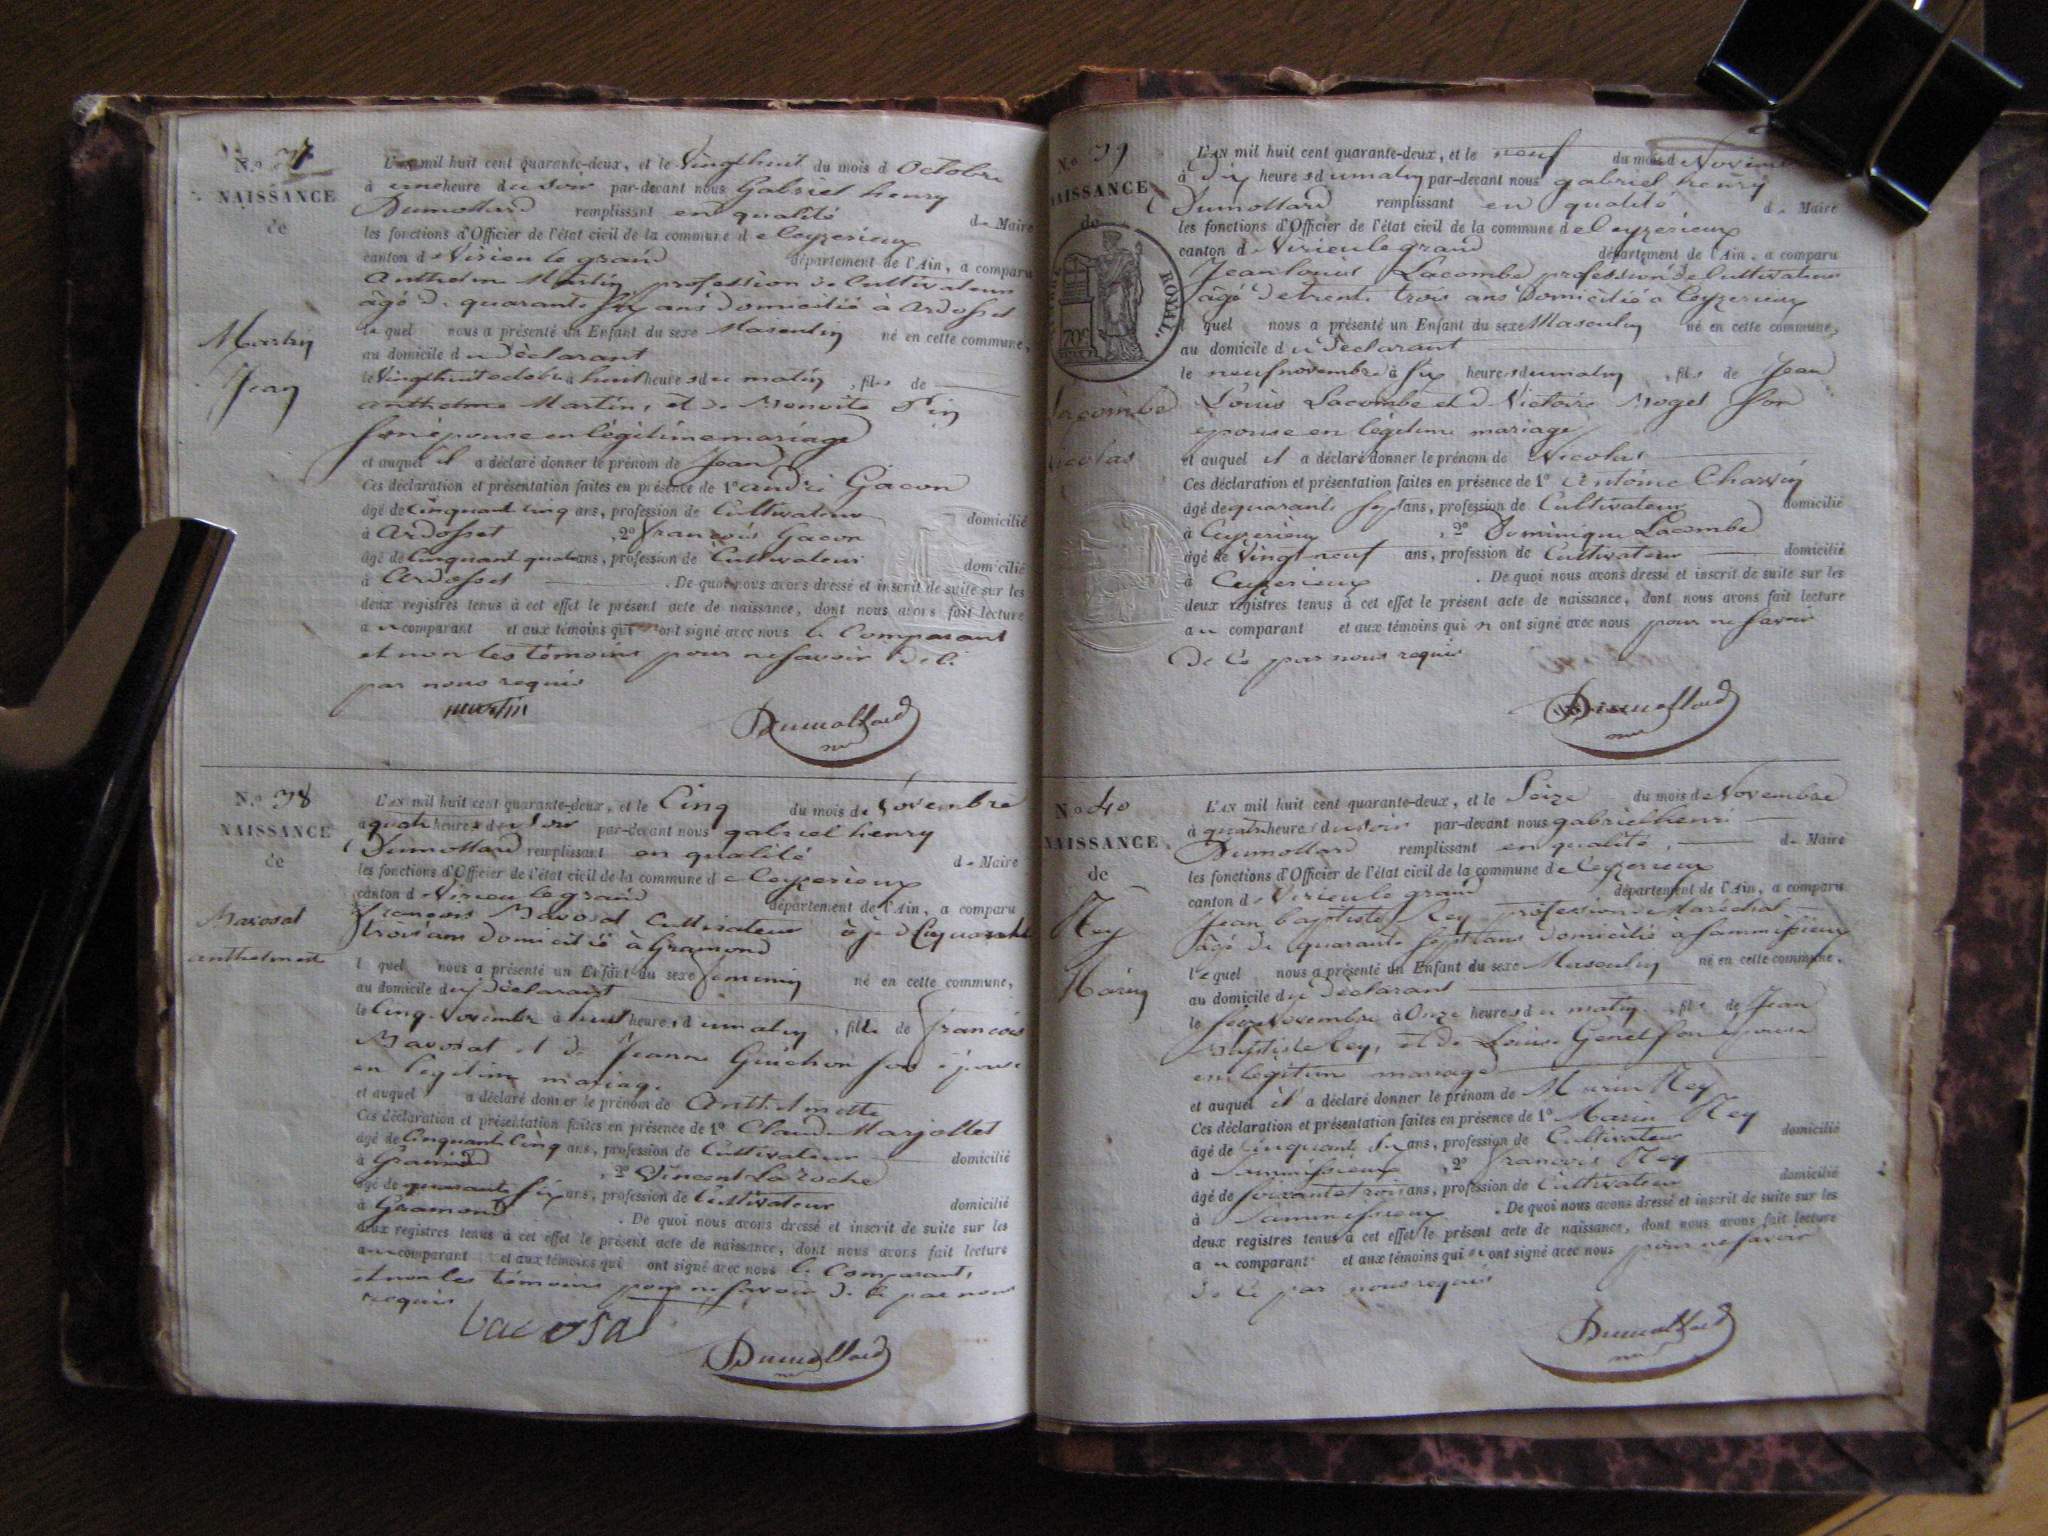 N.o 37
NAISSANCE
de
Martin
Jean
L'AN mil huit cent quarante-deux, et le Vingthuit du mois d Octobre
à une heure du soir par-devant nous Gabriel henry
Dumollard remplissant en qualité de Maire
les fonctions d'Officier de l'état civil de la commune de Ceyzerieux
canton de Virieu le grand département de l'Ain, a comparu
Anthelme Martin, profession de Cultivateur
âgé de quarante six ans domicilié à Ardosset
le quel nous a présenté un Enfant du sexe Masculin né en cette commune,
au domicile du déclarant
le Vingthuit octobre à huit heures du matin, fils de
anthelme Martin, et de Pin
son épouse en légitime mariage
et auquel il a déclaré donner le prénom de Jean
Ces déclaration et présentation faites en présence de 1o andré Gacon
âgé de Cinquante cinq ans, profession de Cultivateur domicilié
à Ardosset, 2o françois Gacon
âgé de Cinquant quatre ans, profession de Cultivateur domicilié
à Ardosset . De quoi nous avons dressé et inscrit de suite sur les
deux registres tenus à cet effet le présent acte de naissance, dont nous avons fait lecture
au comparant et aux témoins qui ont signé avec nous le Comparant
et non les témoins pour ne savoir de ce
par nous requis
martin
Dumollard
N.o 38
NAISSANCE
de
Mavosat
anthelmette
L'AN mil huit cent quarante-deux, et le Cinq du mois de Novembre
à quatre heures du soir par-devant nous gabriel henry
Dumollard remplissant en qualité de Maire
les fonctions d'Officier de l'état civil de la commune de Ceyzerieux
canton de Virieu le grand département de l'Ain, a comparu
françois Mavosat Cultivateur âgé de quarante
trois ans domicilié à Gramond
l quel nous a présenté un Enfant du sexe feminin né en cette commune,
au domicile du déclarant
le Cinq Novembre à huit heures du matin, fille de françois
Mavosat et de Jeanne Guichon son épouse
en legitime mariage
et auquel a déclaré donner le prénom de Anthelmette
Ces déclaration et présentation faites en présence de 1o Claude Marjollet
âgé de Cinquante Cinq ans, profession de Cultivateur domicilié
à Gramond, 2o Vincent La roche
âgé de quarante six ans, profession de Cultivateur domicilié
à Gramond . De quoi nous avons dressé et inscrit de suite sur les
deux registres tenus à cet effet le présent acte de naissance, dont nous avons fait lecture
au comparant et aux témoins qui ont signé avec nous le Comparant,
et non les témoins pour ne savoir de ce par nous
requis
Dumollard
N.o 39
NAISSANCE
de
TIMBRE ROYAL.
70c
Lacombe
Nicolas
L'AN mil huit cent quarante-deux, et le neuf du mois d Novem
à dix heures du matin par-devant nous gabriel henry
Dumollard remplissant en qualité de Maire
les fonctions d'Officier de l'état civil de la commune de Ceyzérieux
canton de Virieu le grand département de l'Ain, a comparu
Jean louis Lacombe profession de Cultivateur
âgé de trente trois ans domicilié à Ceyzerieux
l quel nous a présenté un Enfant du sexe Masculin né en cette commune,
au domicile du déclarant
le neuf novembre à six heures du matin, fils de Jean
Louis Lacombe et de Victoire Moget son
épouse en légitime mariage
et auquel il a déclaré donner le prénom de Nicolas
Ces déclaration et présentation faites en présence de 1o Antoine Charvin
âgé de quarante sept ans, profession de Cultivateur domicilié
à Ceyzerieux, 2o Dominique Lacombe
âgé de Vingt neuf ans, profession de Cultivateur domicilié
à Ceyzerieux . De quoi nous avons dressé et inscrit de suite sur les
deux registres tenus à cet effet le présent acte de naissance, dont nous avons fait lecture
au comparant et aux témoins qui n ont signé avec nous pour ne savoir
de Ce par nous requis
Dumollard
N.o 40
NAISSANCE
de
Rey
Marin
L'AN mil huit cent quarante-deux, et le Seize du mois de Novembre
à quatre heures du soir par-devant nous gabriel henri
Dumollard remplissant en qualité de Maire
les fonctions d'Officier de l'état civil de la commune de Ceyzerieux
canton de Virieu le grand département de l'Ain, a comparu
Jean baptiste Rey profession de Maréchal
âgé de quarante sept ans domicilié a Sammissieux
le quel nous a présenté un Enfant du sexe Masculin né en cette commune,
au domicile du déclarant
le Seize Novembre à Onze heures du matin, fils de Jean
baptiste Rey, et de Louise Genet son épouse
en legitime mariage
et auquel il a déclaré donner le prénom de Marin Rey
Ces déclaration et présentation faites en présence de 1o Marin Rey
âgé de Cinquante six ans, profession de Cultivateur domicilié
à Sammissieux, 2o françois Rey
âgé de soixante trois ans, profession de Cultivateur domicilié
à Sammissieux . De quoi nous avons dressé et inscrit de suite sur les
deux registres tenus à cet effet le présent acte de naissance, dont nous avons fait lecture
au comparant et aux témoins qui n ont signé avec nous pour ne savoir
de Ce par nous requis
Dumollard